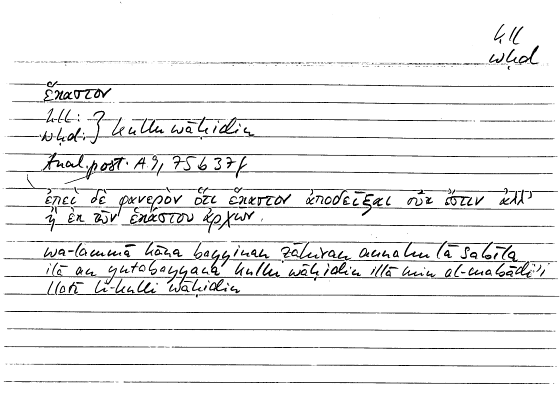 kll
wḥd
ἕκαστον
kll:
wḥd: } kullu wāḥidin
Anal. post. A 9, 75 b 37f
ἐπεὶ δὲ φανερὸν ὅτι ἕκαστον ἀποδεῖξαι οὐκ ἔστιν ἀλλ’
ἢ ἐκ τῶν ἑκάστου ἀρχῶν.
wa-lammā kāna bayyinan ẓāhiran annahu lā sabīla
ilā an yutabayyana kullu wāḥidin illā min al-mabādi’i
llatī li-kulli wāḥidin